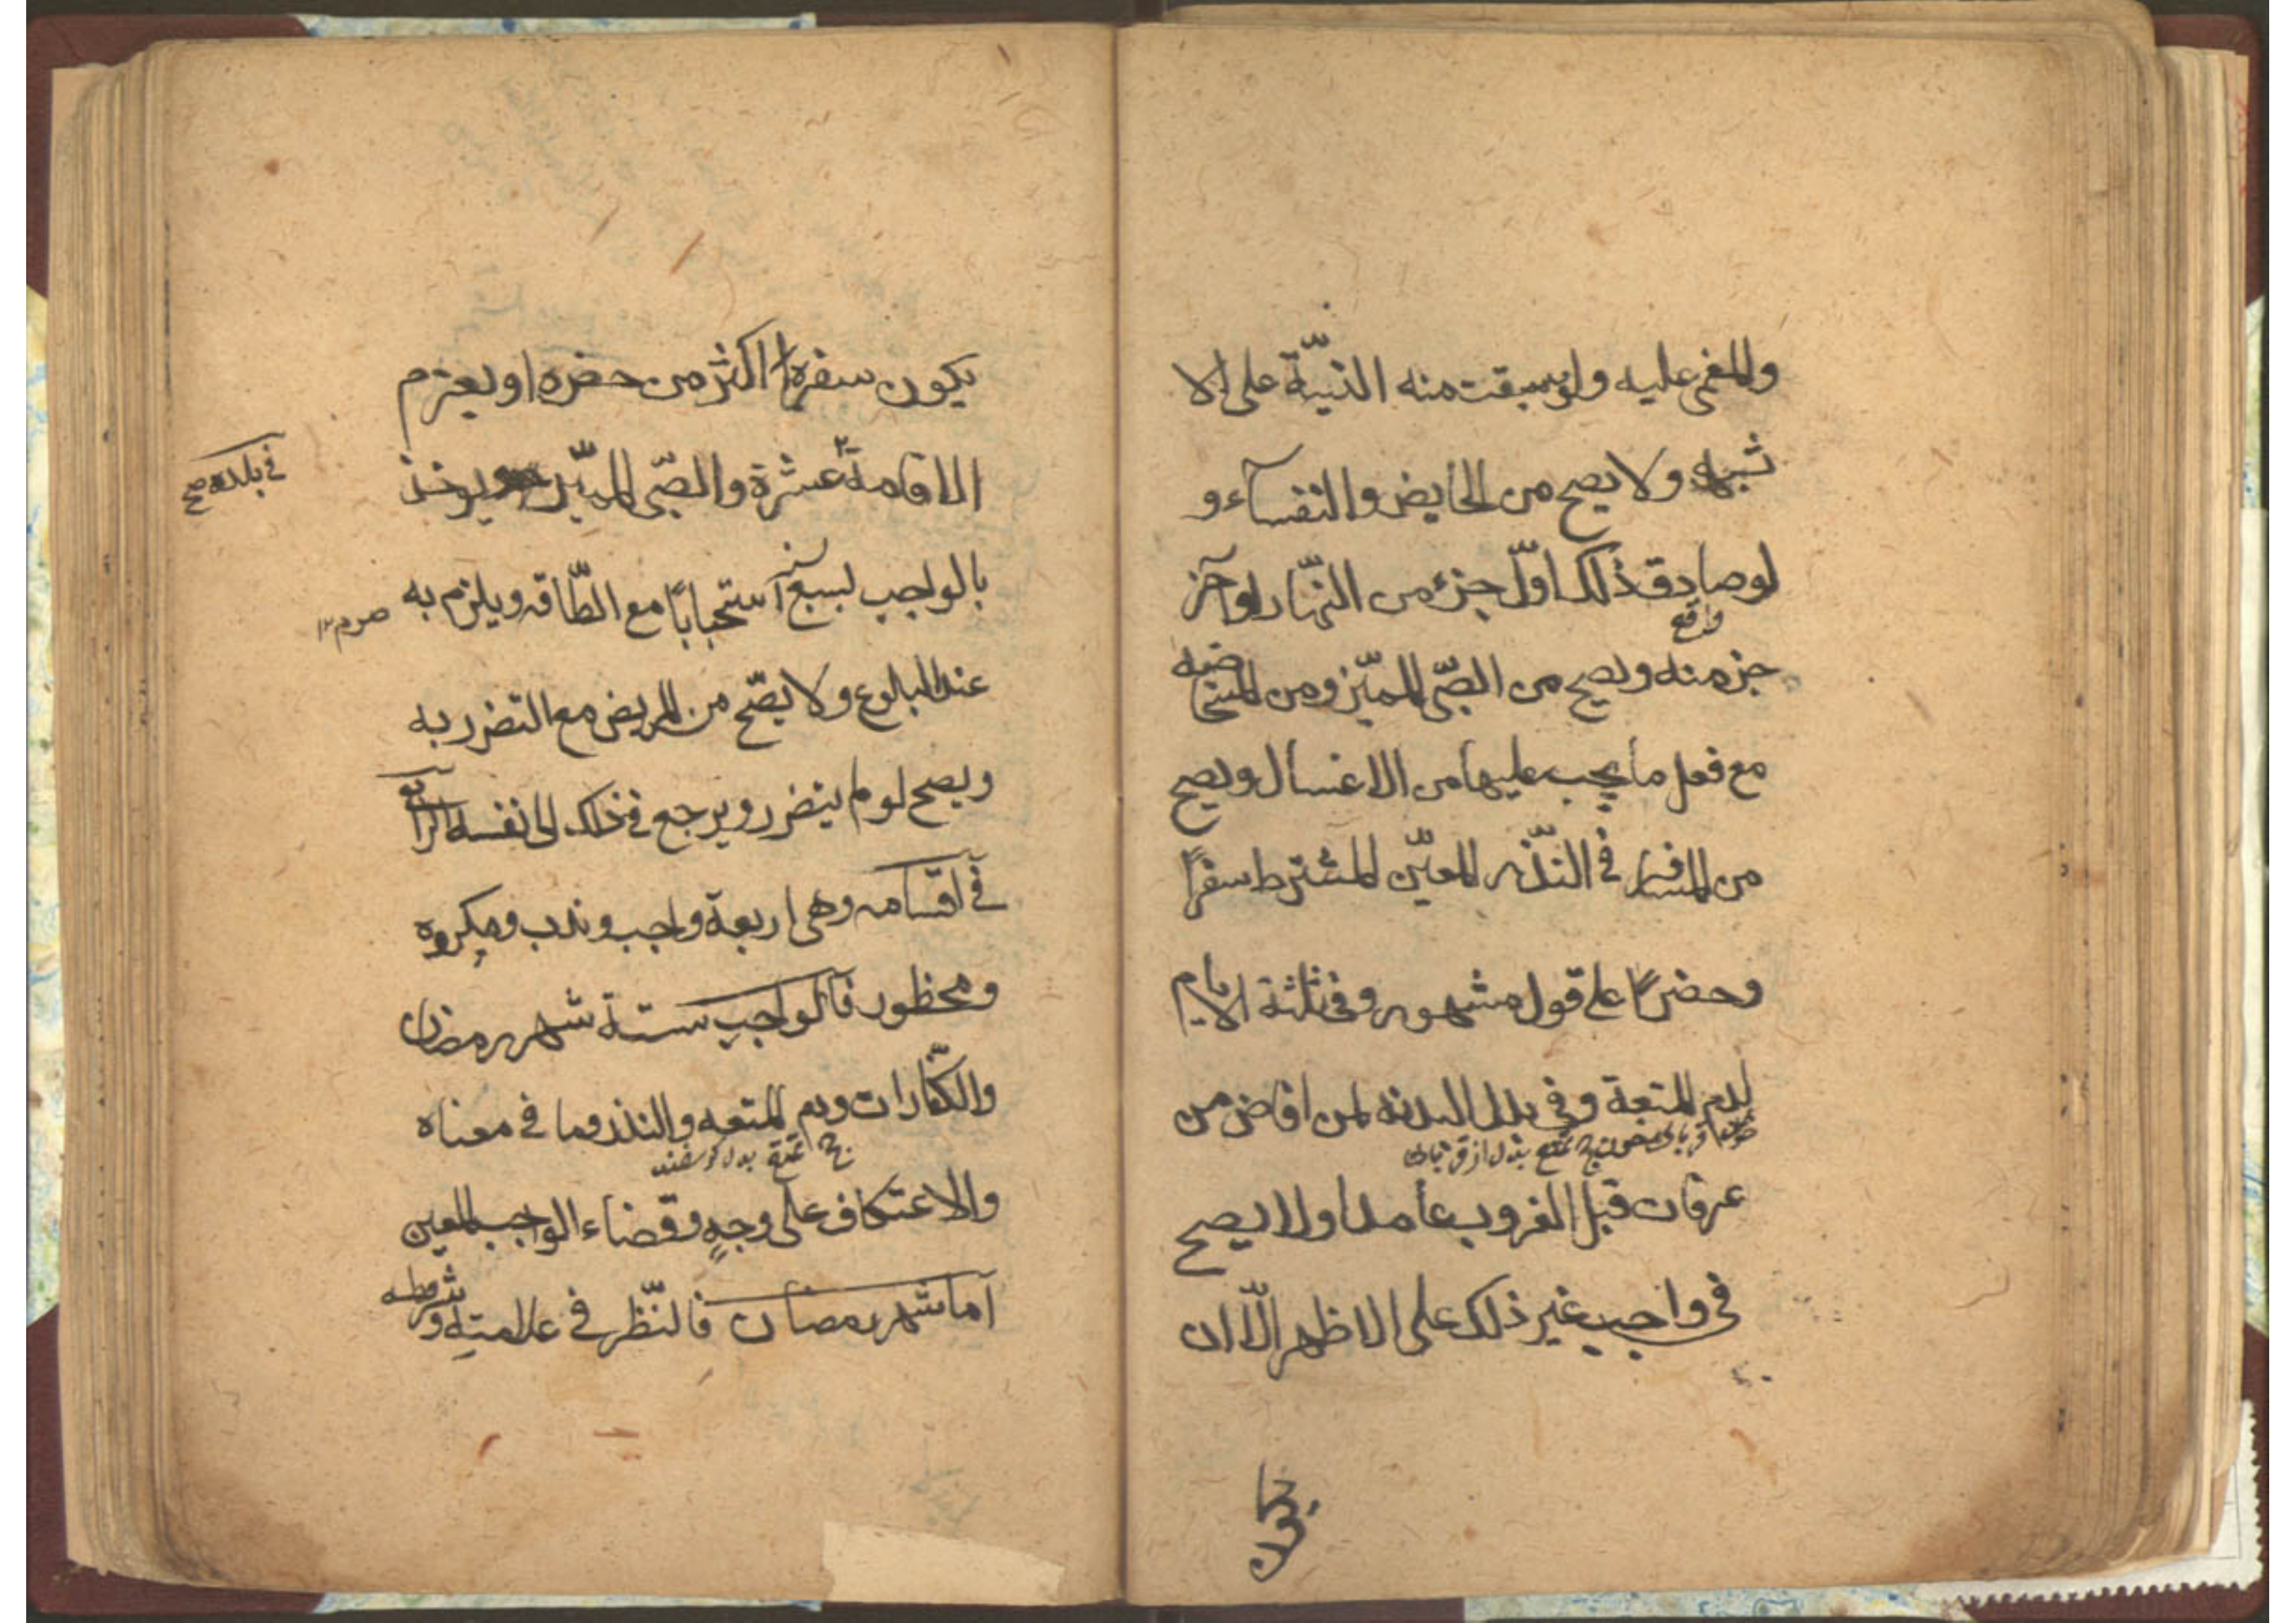 والمغمى عليه ولو سبقت منه النيّة على الا
شبه ولا يصح من الحايض والنفسآء و
لو صادف ذلك اوّل جزء من النهّار او آخر
واقع
جزء منه ويصح من الصّبى المميّز ومن المستحا
ضه
مع فعل ما يجب عليها من الاغسال ويصح
من المسافر فى النّذر المعيّن المشترط سفرًا
وحضرًا على قول مشهور وفى ثلثة الايام
لدم المتعة وفى بدل البدنه لمن افاض من
تمتع بدل از قربانى
عرفات قبل الغروب عامدا ولا يصح
فى واجب غير ذلك على الاظهر الّا ان
يكون
يكون سفره اكثر من حضره او يعزم
الاقامة عشرة والصّبى المميّز يوخذ
فى بلده صح
بالواجب لسبع استحبابًا مع الطّاقه ويلزم به
صوم ١٢
عند البلوغ ولا يصّح من المريض مع التضرر به
ويصح لو لم يتضرر ويرجع فى ذلك الى نفسه الرابع
فى اقسامه وهى اربعة واجب وندب ومكروه
ومحظور فالواجب ستة شهر رمضان
والكفّارات ودم المتعه والنذر وما فى معناه
حج تمتع بدل گوسفند
والاعتكاف على وجهٍ وقضاء الواجب المعين
اما شهر رمضان فالنّظر فى علامته و
شروطه